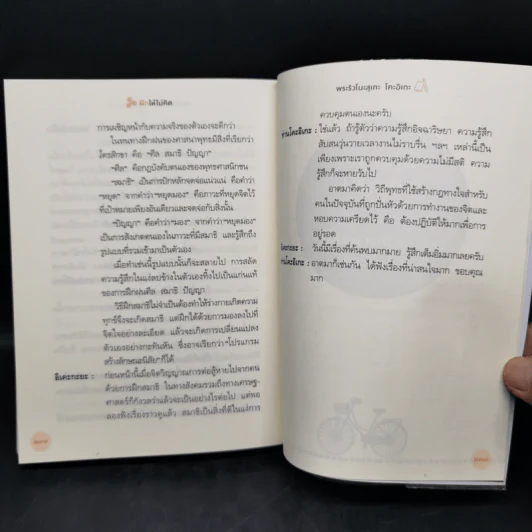 ฝึกให้ไม่คิด
การเผชิญหน้ากับความจริงของตัวเองจะดีกว่า
ในหนทางฝึกฝนของศาสนาพุทธมีสิ่งที่เรียกว่า
ไตรสิกขา คือ "ศีล สมาธิ ปัญญา"
"ศีล" คือกฎบังคับตนเองของพุทธศาสนิกชน
"สมาธิ" เป็นการฝึกหลักจดจ่อแน่วแน่ คือคำว่า
"หยุด" จากคำว่า "หยุดมอง" คือภาวะที่หยุดจิตไว้
ที่เป้าหมายเพียงอันเดียวและจดจ่อกับสิ่งนั้น
"ปัญญา" คือคำว่า "มอง" จากคำว่า "หยุดมอง"
เป็นการสังเกตตนเองในภาวะที่มีสมาธิ และรู้สึกถึง
รูปแบบที่รวมเข้ามาเป็นตัวเอง
เมื่อทำเช่นนี้รูปแบบนั้นก็จะสลายไป การสลัด
ความรู้สึกในแง่ลบข้างในตัวเองทิ้งไปเป็นแก่นแท้
ของการฝึกฝนศีล สมาธิ ปัญญา
วิธีฝึกสมาธิไม่จำเป็นต้องทำให้ร่างกายเกิดความ
ทุกข์จึงจะเกิดสมาธิ แต่ฝึกได้ด้วยการมองลงไปที่
จิตใจอย่างละเอียด แล้วจะเกิดการเปลี่ยนแปลง
ตัวเองอย่างกะทันหัน ซึ่งอาจเรียกว่า "โปรแกรม
สร้างลักษณะนิสัย" ก็ได้
อิเคะกะยะ : ก่อนหน้านี้เมื่อจิตวิญญาณการต่อสู้หายไปจากคน
ด้วยการฝึกสมาธิ ในทางสังคมรวมถึงทางเศรษฐ-
ศาสตร์ก็กังวลว่าแล้วจะเป็นอย่างไรต่อไป แต่พอ
ลองฟังเรื่องราวดูแล้ว สมาธิเป็นสิ่งที่ดีในแง่การ
พระริวโนะสุเกะ โคะอิเกะ
ควบคุมตนเองนะครับ
ท่านโคะอิเกะ : ใช่แล้ว ถ้ารู้ตัวว่าความรู้สึกอิจฉาริษยา ความรู้สึก
สับสนวุ่นวายเวลางานไม่ราบรื่น ฯลฯ เหล่านี้เป็น
เพียงเพราะเราถูกควบคุมด้วยความไม่มีสติ ความ
รู้สึกก็จะหายวับไป
อาตมาคิดว่า วิถีพุทธที่ใช้สร้างกฎทางใจสำหรับ
คนในปัจจุบันที่ถูกปั่นหัวด้วยการทำงานของจิตและ
หอบความเครียดไว้ คือ ต้องปฏิบัติให้มากเพื่อการ
อยู่รอด
วันนี้มีเรื่องที่ค้นพบมากมาย รู้สึกเต็มอิ่มมากเลยครับ
อาตมาก็เช่นกัน ได้ฟังเรื่องที่น่าสนใจมาก ขอบคุณ
มาก